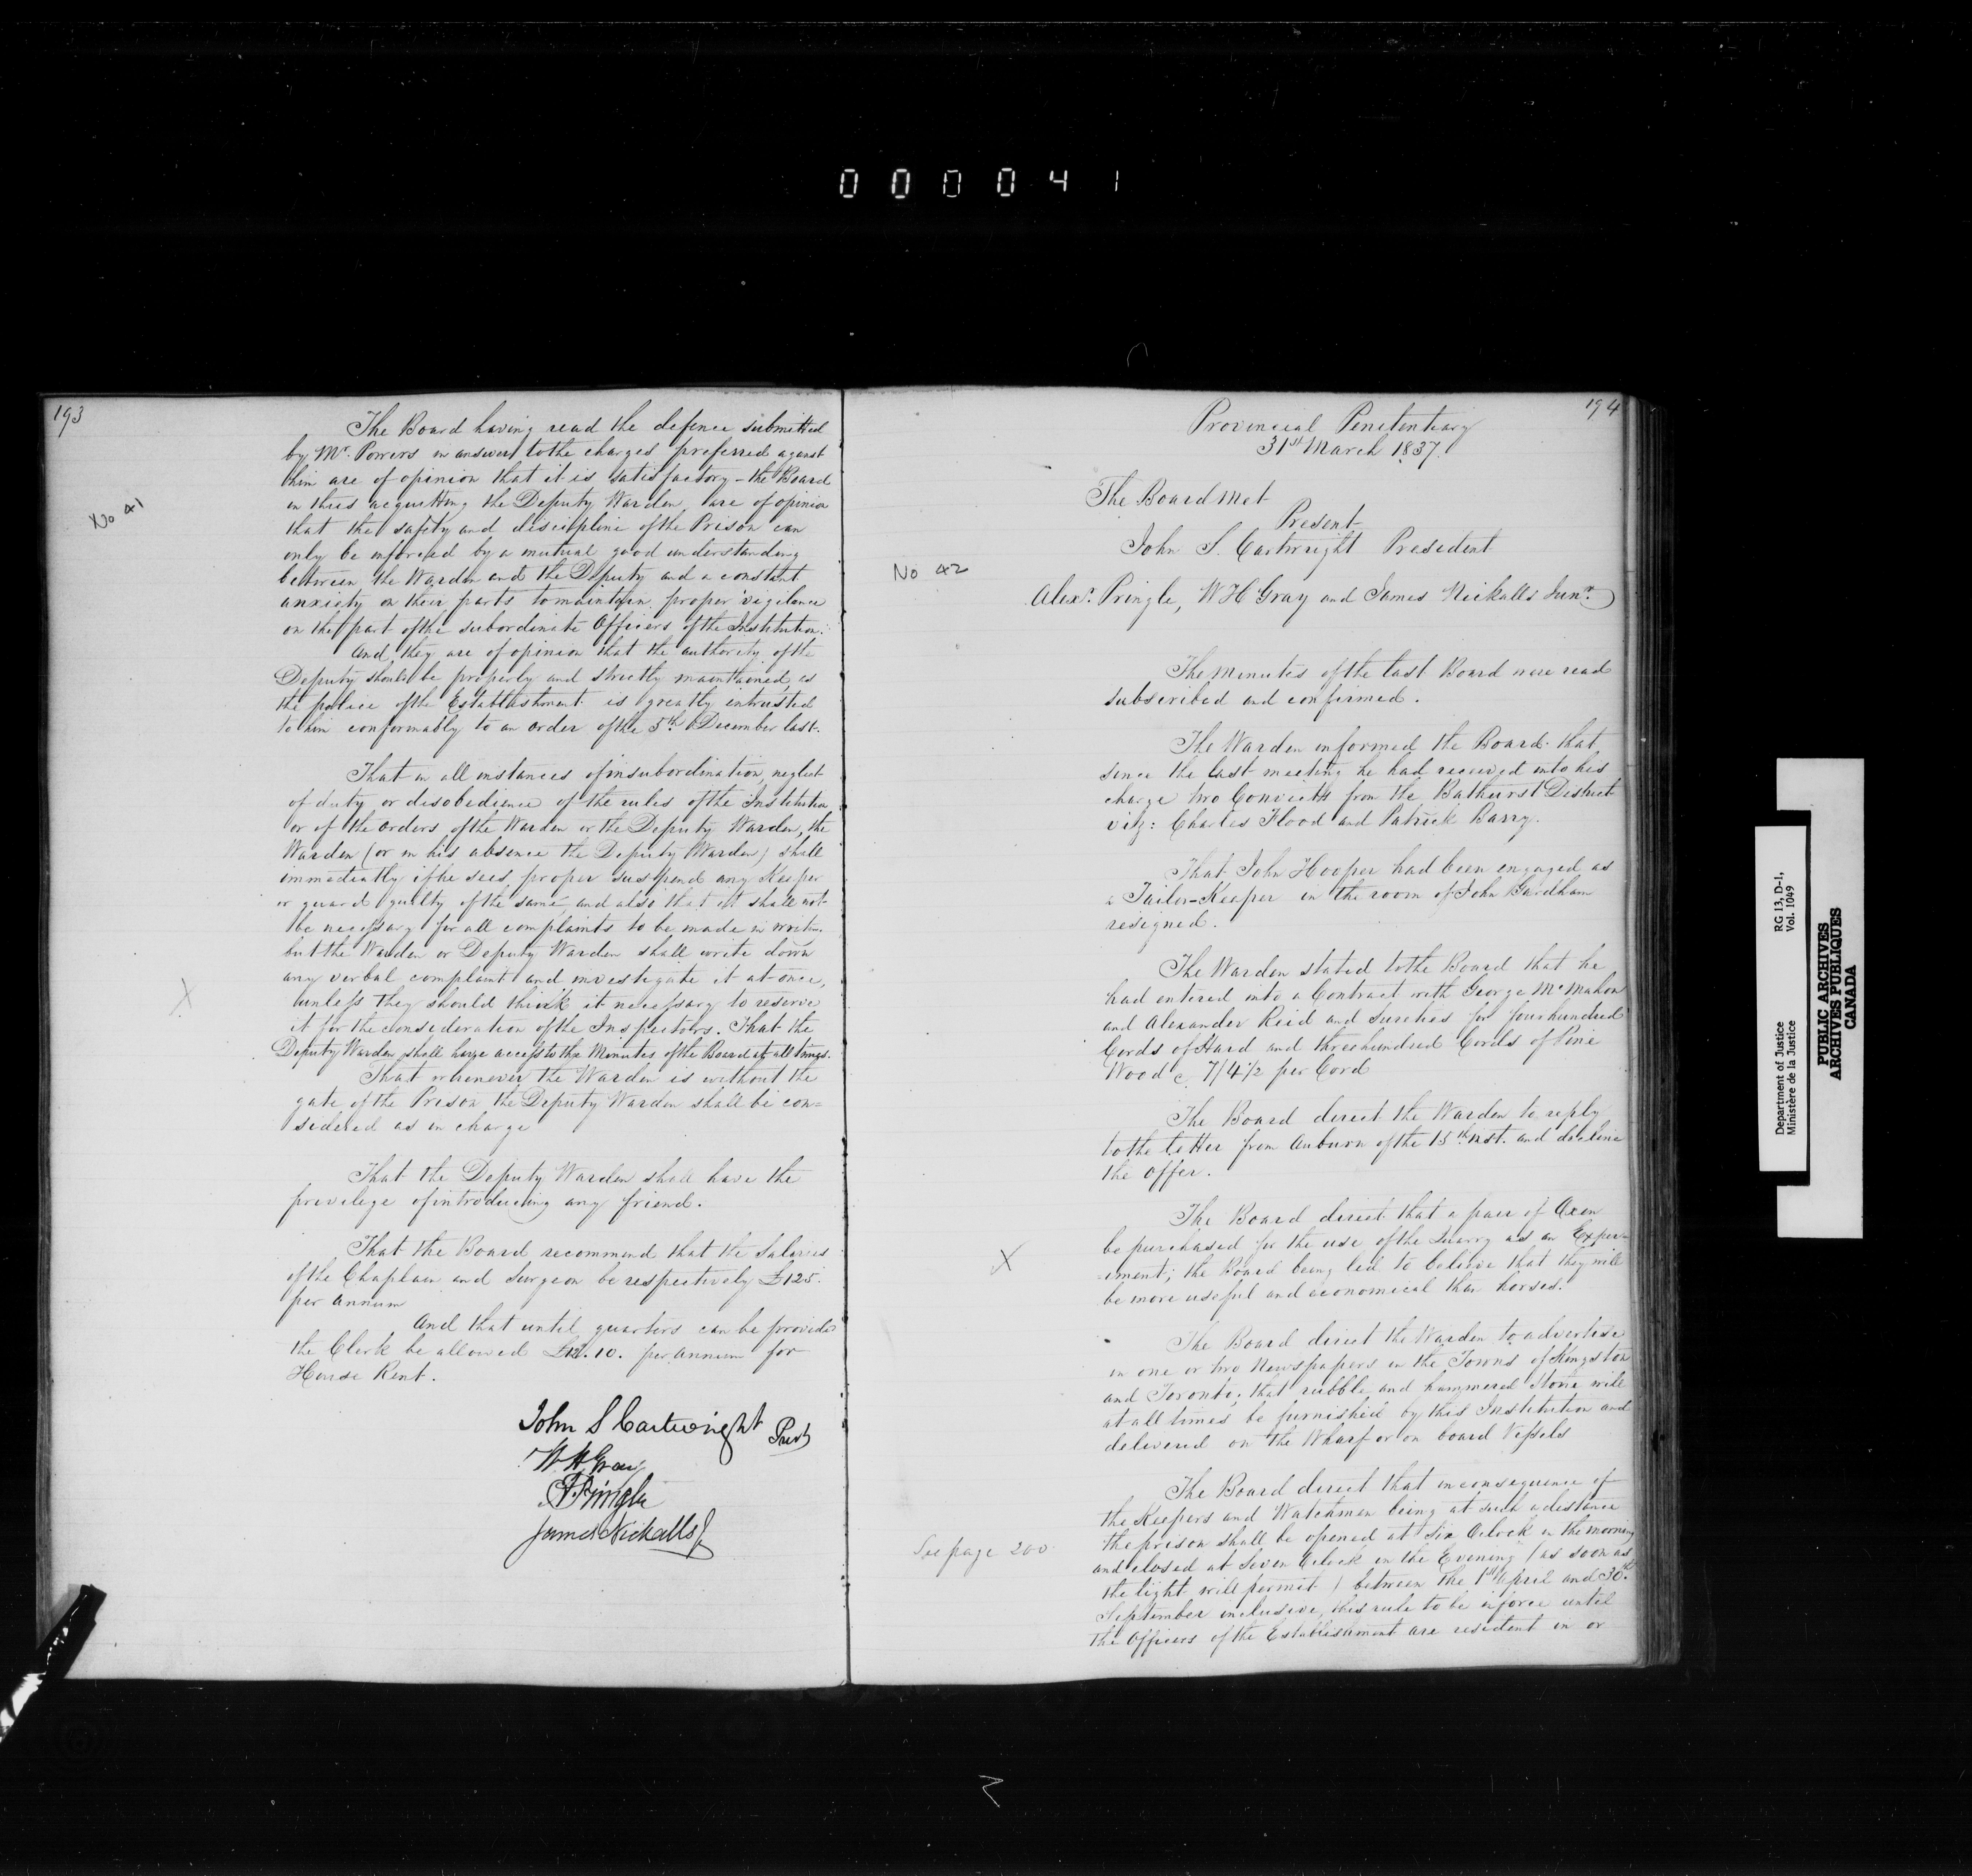 000041
193
No 41
The Board having read the defence submitted
by Mr. Powers in answer to the charges preferred against
him are of opinion that it is satisfactory - the Board
in thus acquitting the Deputy Warden are of opinion
that the safety and discipline of the Prison can
only be inforced by a mutual good understanding
between the Warden and the Deputy and a constant
anxiety on their parts to maintain proper vigilance
on the part of the subordinate Officers of the Institution.
And they are of opinion that the authority of the
Deputy should be properly and strictly maintained as
the police of the Establishment is greatly intrusted
to him conformably to an order of the 5th December last.
That in all instances of insubordination, neglect
of duty or disobedience of the rules of the Institution
or of the orders of the Warden or the Deputy Warden, the
Warden (or in his absence the Deputy Warden) shall
immediatly if he sees proper suspend any Keeper
or guard guilty of the same and also that it shall not
be necessary for all complaints to be made in
but the Warden or Deputy Warden shall write down
any verbal complaint and investigate it at once,
unless they should think it necessary to reserve
it for the consideration of the Inspectors. That the
Deputy Warden shall have access to the Minutes of the Board at all times.
That whenever the Warden is without the
gate of the Prison the Deputy Warden shall be con=
sidered as in charge
X
That the Deputy Warden shall have the
privelege of introducing any friend.
That the Board recommend that the Salaries
of the Chaplain and Surgeon be respectively £125.
per Annum
And that until quarters can be provided
the Clerk be allowed £12.10. per Annum for
House Rent.
John S Cartwright Prest
W H Gray
A Pringle
James Nickalls J
194
Provincial Penitentiary
31st March 1837.
The Board Met
Present
John S. Cartwright President
No 42
Alexr. Pringle, W H Gray and James Nickalls Junr.
The Minutes of the last Board were read
subscribed and confirmed.
The Warden informed the Board that
since the last meeting he had received into his
charge two Convicts from the Bathurst District
viz: Charles Flood and Patrick Barry.
That John Hooper had been engaged as
a Tailor-Keeper in the room of John Gardham
resigned.
The Warden stated to the Board that he
had entered into a Contract with George McMahon
and Alexander Reid and Sureties for four hundred
Cords of Hard and three hundred Cords of Pine
Wood @ 7/4½ per Cord
The Board direct the Warden to reply
to the letter from Auburn of the 15th inst. and decline
the offer.
The Board direct that a pair of Oxen
be purchased for the use of the Quarry as an Exper=
=iment; the Board being led to believe that they will
be more useful and economical than horses.
X
The Board direct the Warden to advertise
in one or two Newspapers in the Towns of Kingston
and Toronto, that rubble and hammered Stone will
at all times be furnished by this Institution and
delivered on the Wharf or on board Vessels
The Board direct that in consequence of
the Keepers and Watchmen being at such a distance
the prison shall be opened at Six Oclock in the morning
and closed at Seven Oclock in the Evening (as soon as
the light will permit) between the 1st April and 30th
September inclusive, this rule to be in force until
the Officers of the Establishment are resident in or
See page 200
Department of Justice
Ministère de la Justice
RG 13, D-1,
Vol. 1049
PUBLIC ARCHIVES
ARCHIVES PUBLIQUES
CANADA